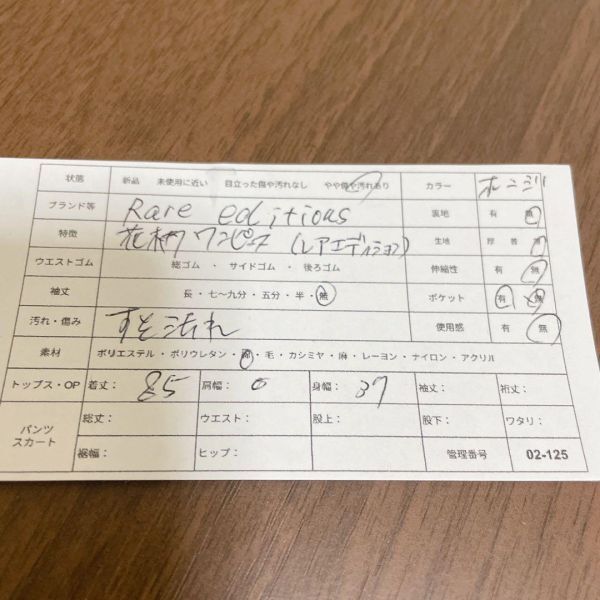 状態 新品 未使用に近い 目立った傷や汚れなし やや傷や汚れあり カラー
ブランド等 Rare editions 裏地 有 無
特徴 花柄ワンピース (レアエディション) 生地 厚 普 薄
ウエストゴム 総ゴム ・ サイドゴム ・ 後ろゴム 伸縮性 有 無
袖丈 長・七~九分・五分・半・無 ポケット 有 無
汚れ・傷み すそ汚れ 使用感 有 無
素材 ポリエステル・ポリウレタン・綿・毛・カシミヤ・麻・レーヨン・ナイロン・アクリル
トップス・OP 着丈: 85 肩幅: 0 身幅: 37 袖丈: 裄丈:
パンツ スカート 総丈: ウエスト: 股上: 股下: ワタリ:
裾幅: ヒップ: 管理番号 02-125